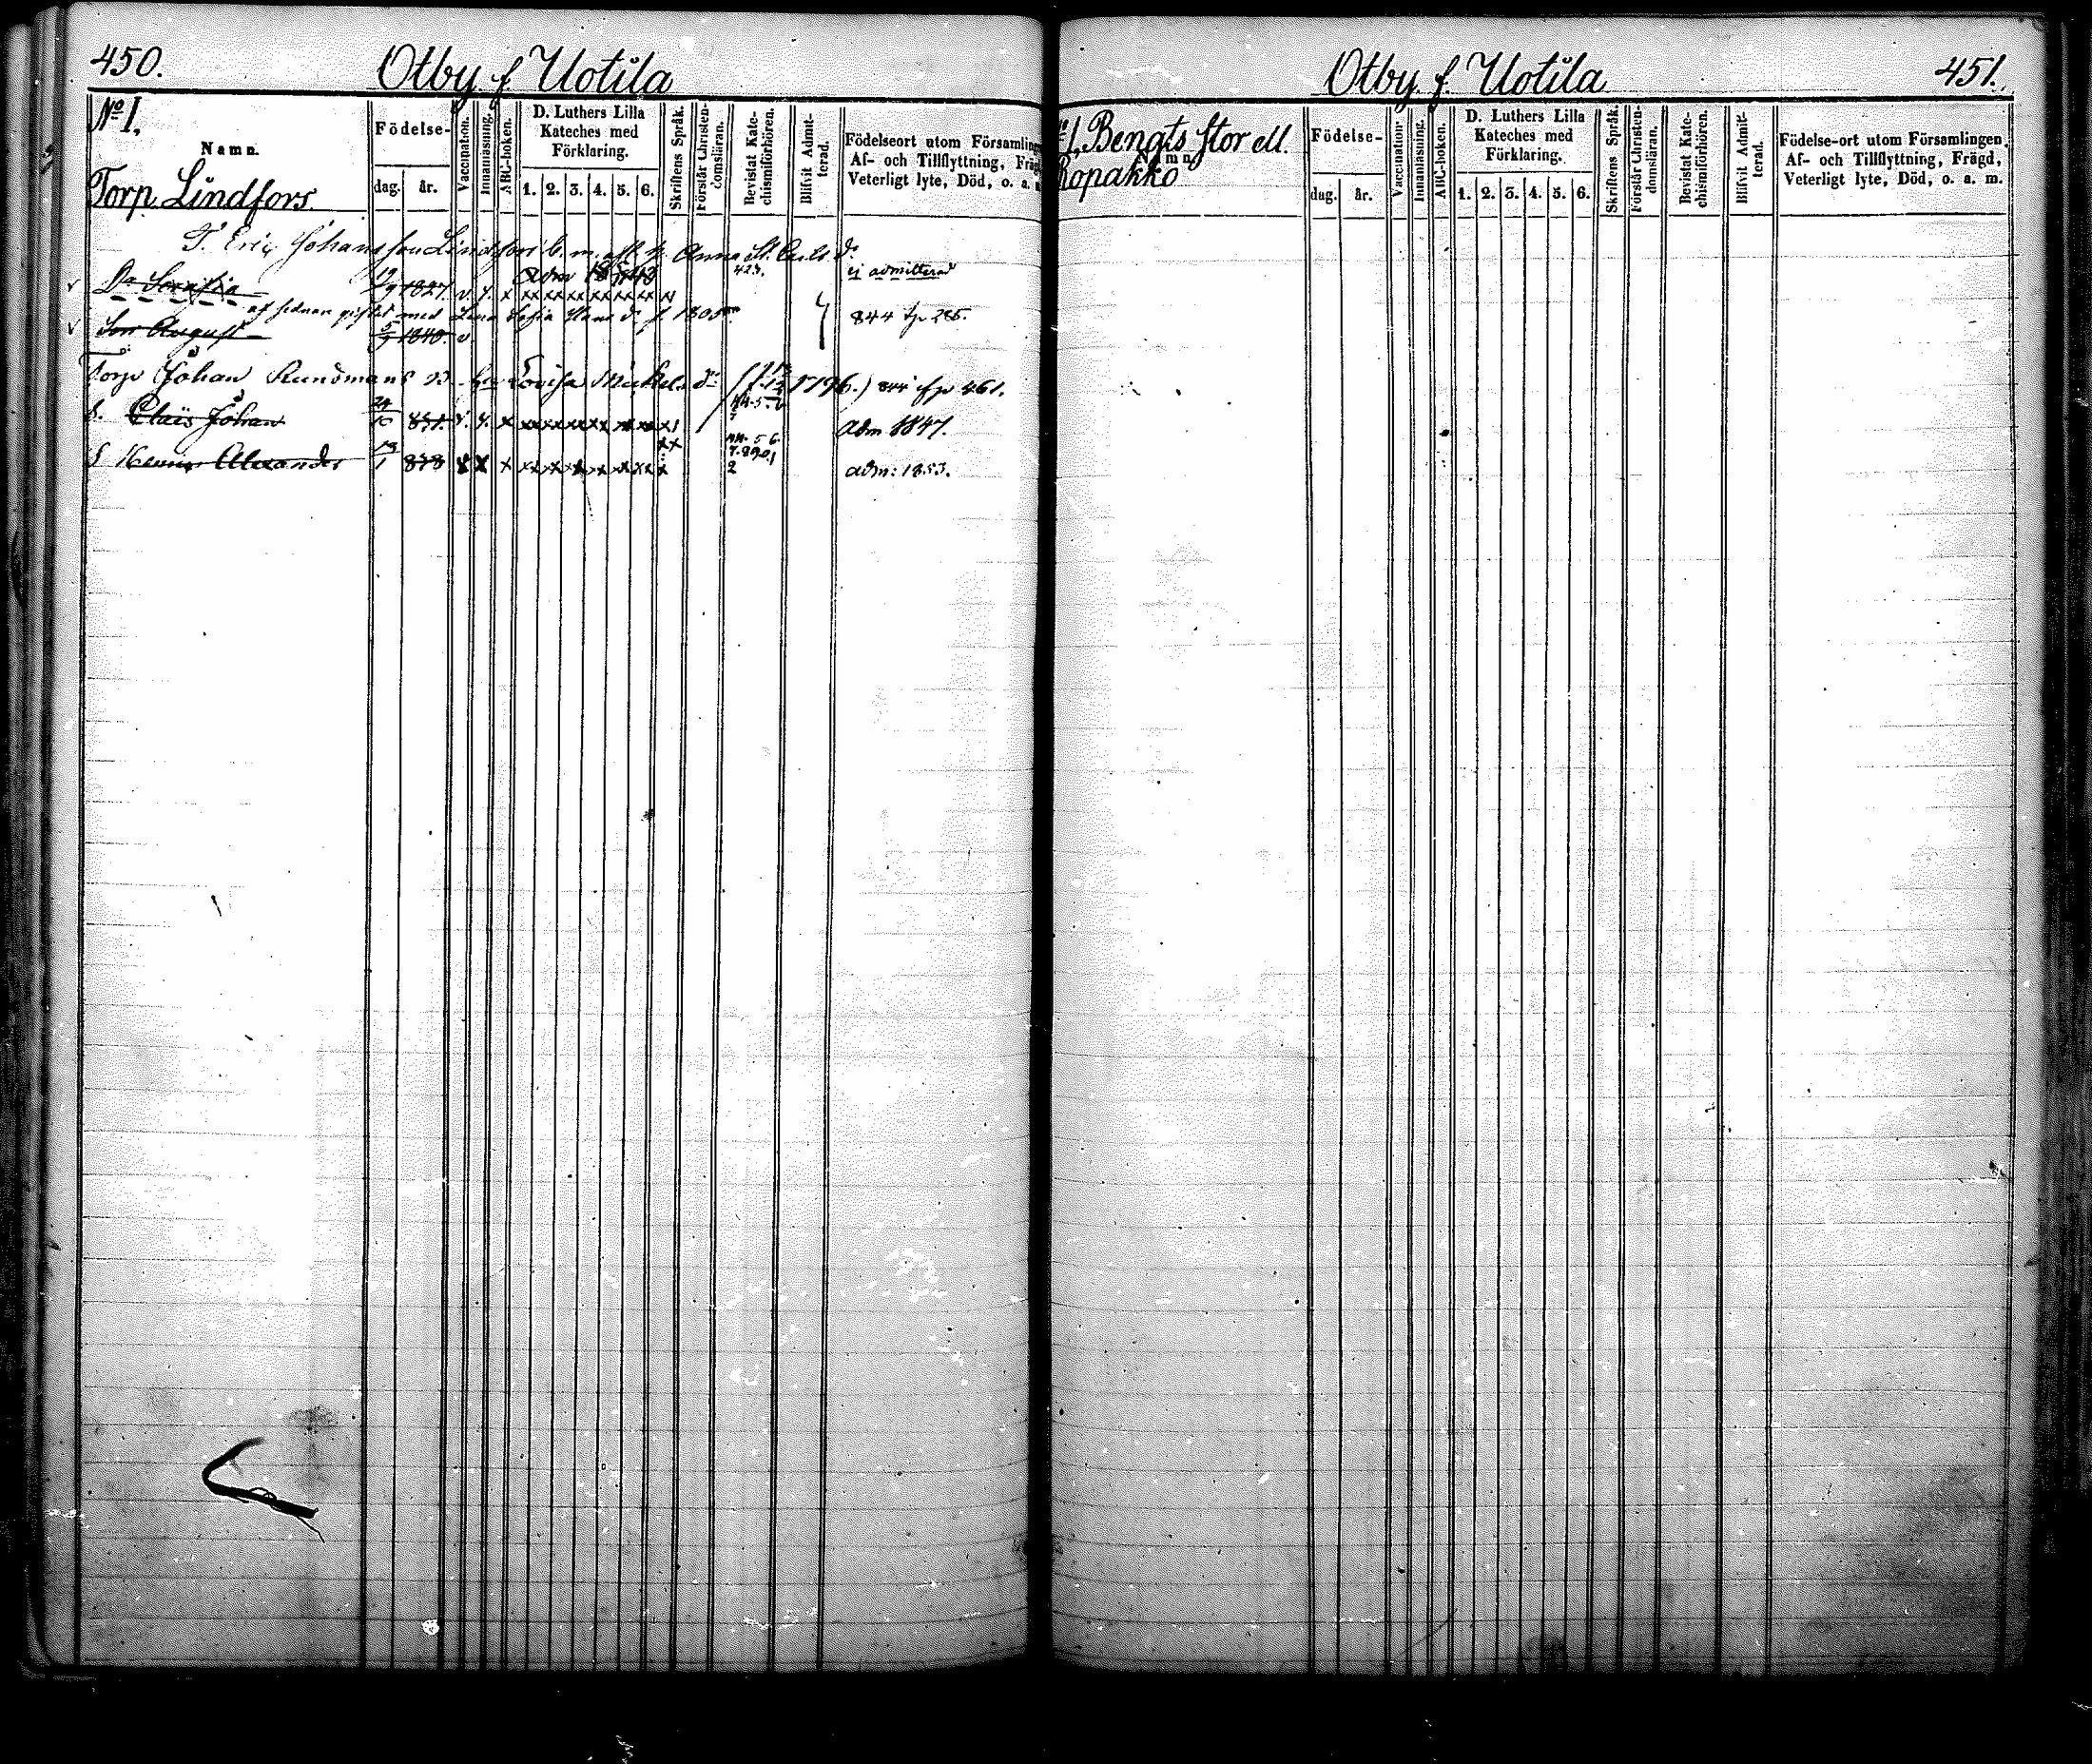 450.
Otby f. Uotila
No I.
Namn.
Torp. Lindfors.
Födelse-
dag. år.
Vaccination.
Innanläsning.
ABC-boken.
D. Luthers Lilla
Kateches med
Förklaring.
1. 2. 3. 4. 5. 6.
Skriftens Språk.
Förstår Christen-
domsläran.
Bevistat Kate-
chismiförhören.
Blifvit Admit-
terad.
Födelseort utom Församling
Af- och Tillflyttning, Frägd
Veterligt lyte, Död, o. a.
T. Eric Johansson Lindfors Anna St. Carls dr
Dr Serafia 19/9 1827. v. y. x xx xx xx xx xx xx
423.
ej admitterad
med Lena Sofia f 1805
Son August 5/9 1840. v
844 fp 285.
Torp Johan Rundmans Lovisa Michels dr 1796.) 844 fp 461.
S. Claës Johan 831. v. y. x
Adm 1847.
S Alexander 838 x x x
44. 5 6.
adm: 1853.
Otby f. Uotila
451.
1. Bengts stor ell.
Namn
Ropakko
Födelse-
dag. år.
Vaccination.
Innanläsning.
ABC-boken.
D. Luthers Lilla
Kateches med
Förklaring.
1. 2. 3. 4. 5. 6.
Skriftens Språk.
Förstår Christen-
domsläran.
Bevistat Kate-
chismiförhören.
Blifvit Admit-
terad.
Födelse-ort utom Församlingen,
Af- och Tillflyttning, Frägd,
Veterligt lyte, Död, o. a. m.